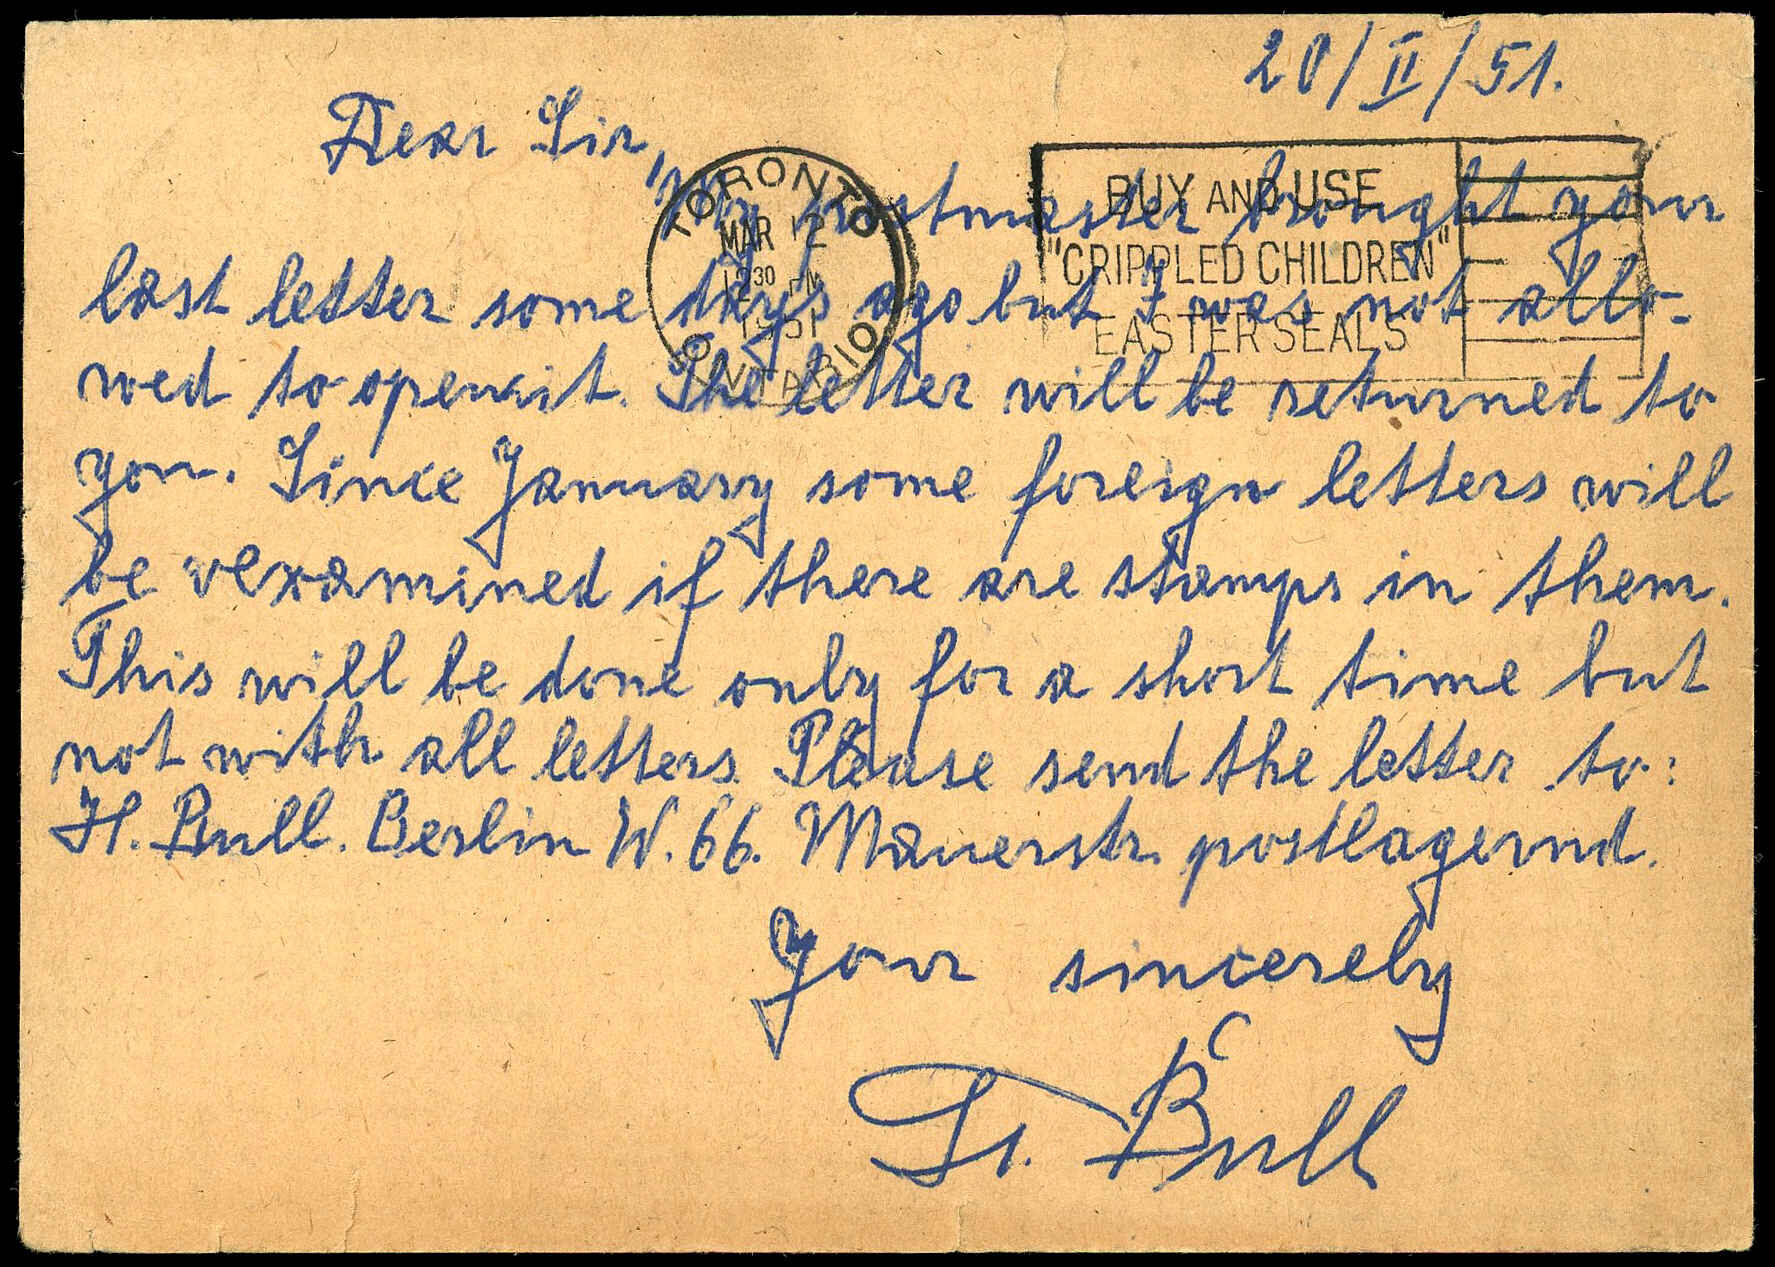 20/II/51.
Dear Sir,
my postmaster brought your
last letter some days ago but I was not allo-
wed to open it. The letter will be returned to
you. Since January some foreign letters will
be examined if there are stamps in them.
This will be done only for a short time but
not with all letters. Please send the letter to:
H. Bull. Berlin W. 66. Mauerstr. postlagernd.
Your sincerely
Bull
TORONTO
MAR 12
12 30 PM
1951
ONTARIO
BUY AND USE
"CRIPPLED CHILDREN"
EASTER SEALS